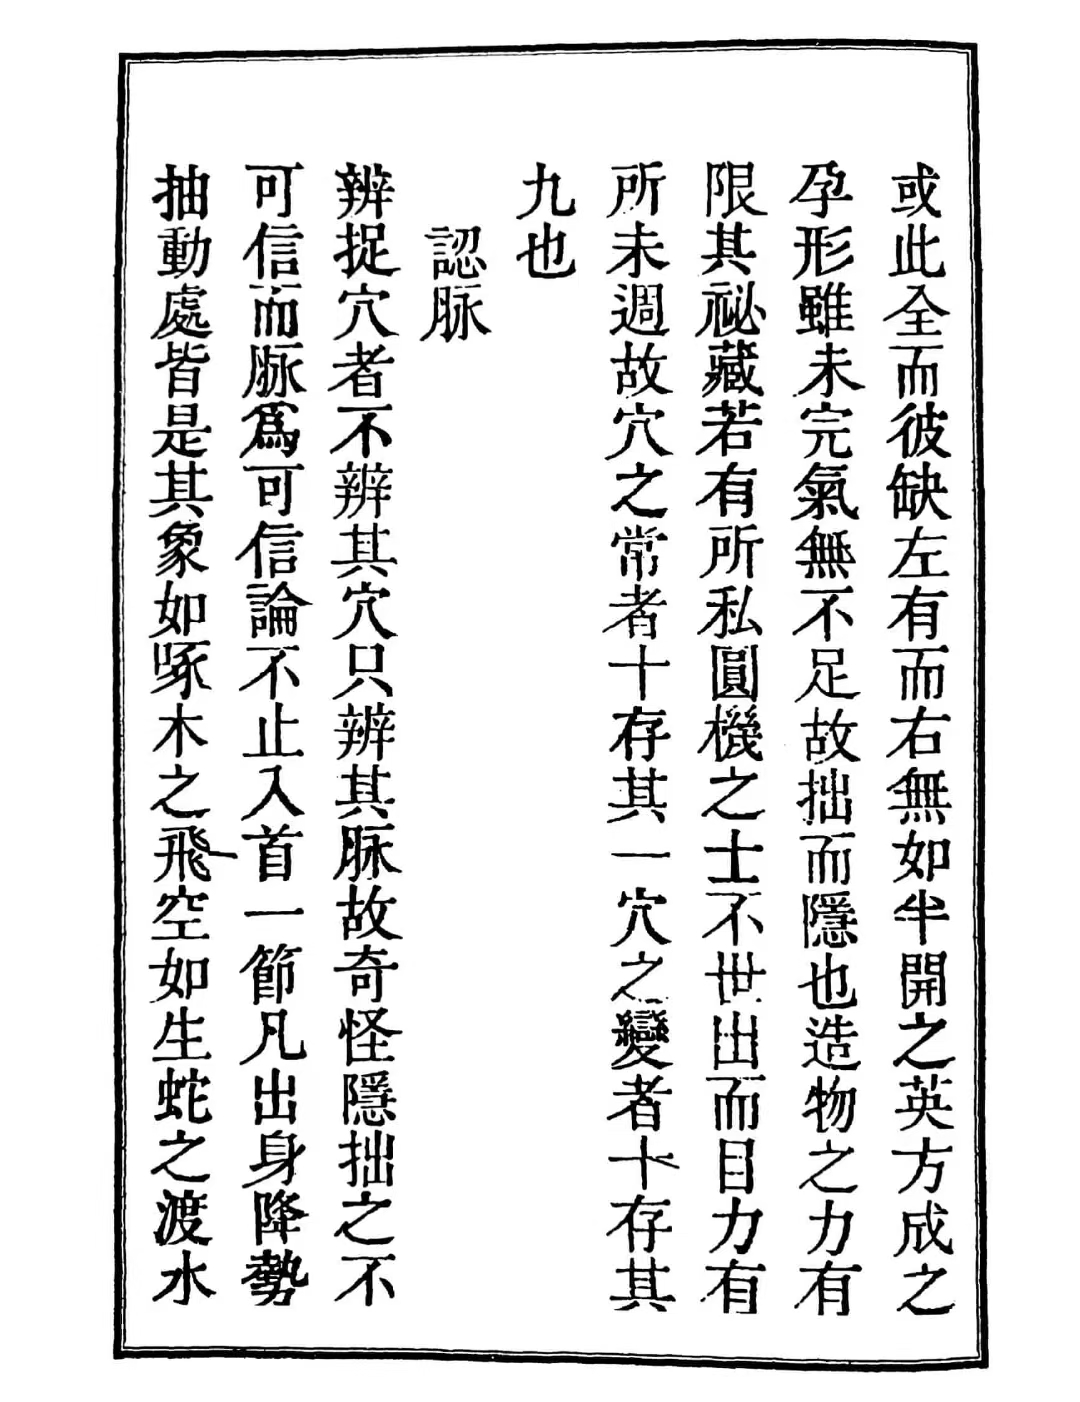 或此全而彼缺左有而右無如半開之英方成之
孕形雖未完氣無不足故拙而隱也造物之力有
限其祕藏若有所私圓機之士不世出而目力有
所未週故穴之常者十存其一穴之變者十存其
九也
認脉
辨捉穴者不辨其穴只辨其脉故奇怪隱拙之不
可信而脉爲可信論不止入首一節凡出身降勢
抽動處皆是其象如啄木之飛空如生蛇之渡水